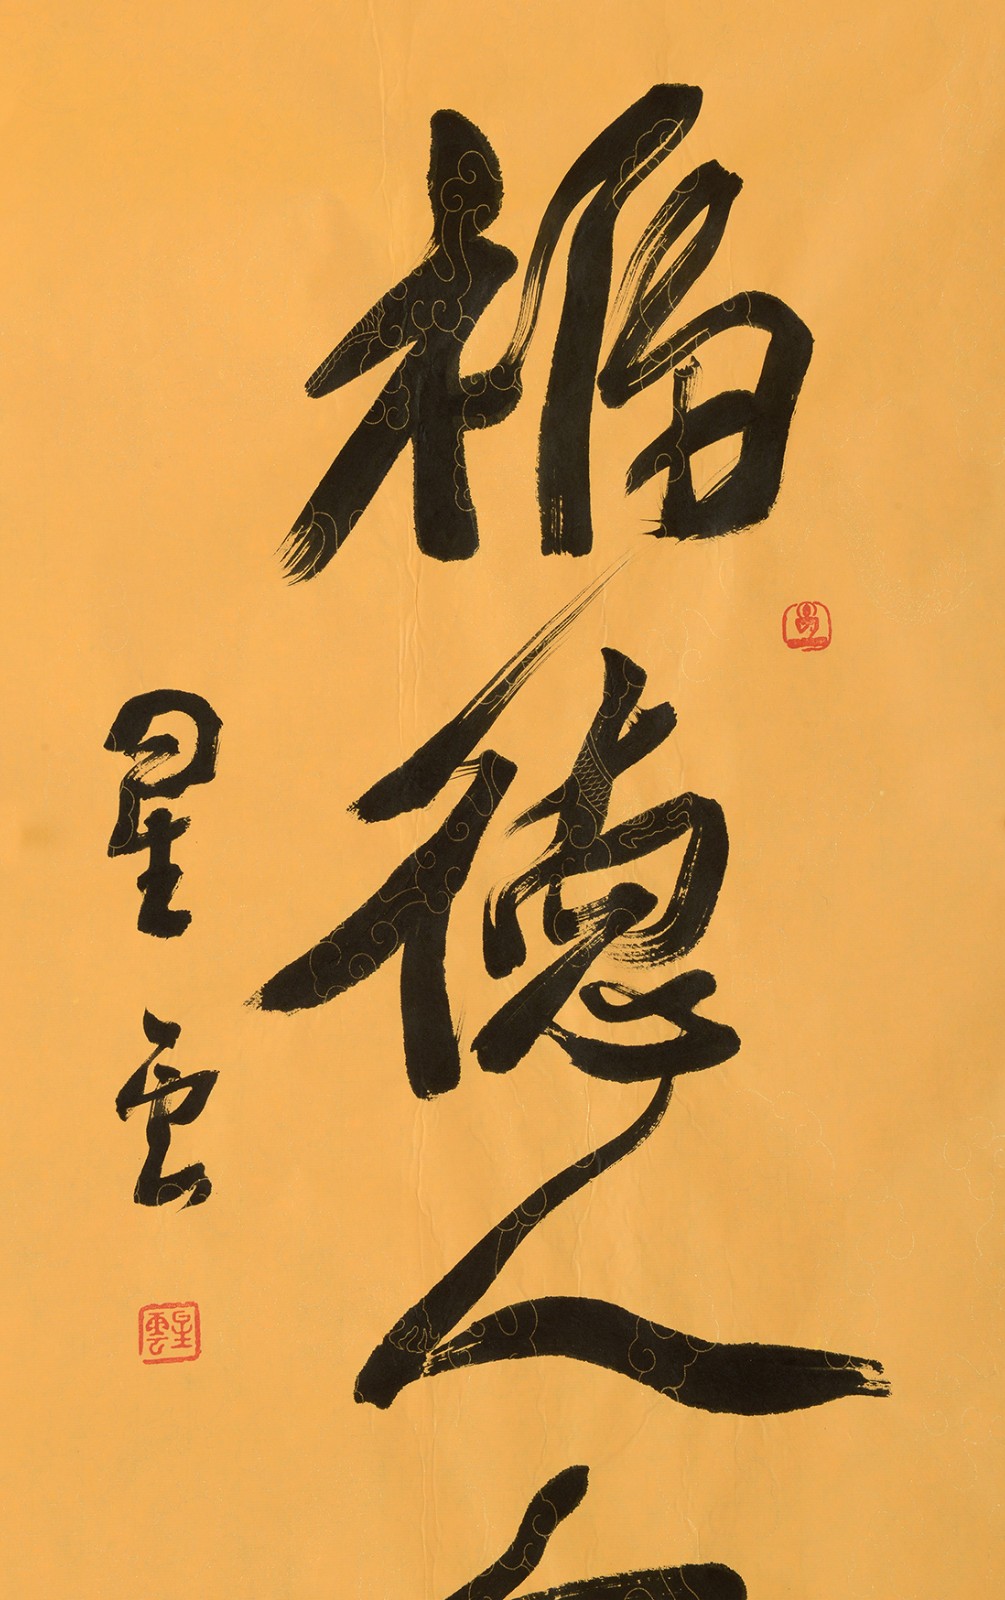 福德人
星雲
星雲